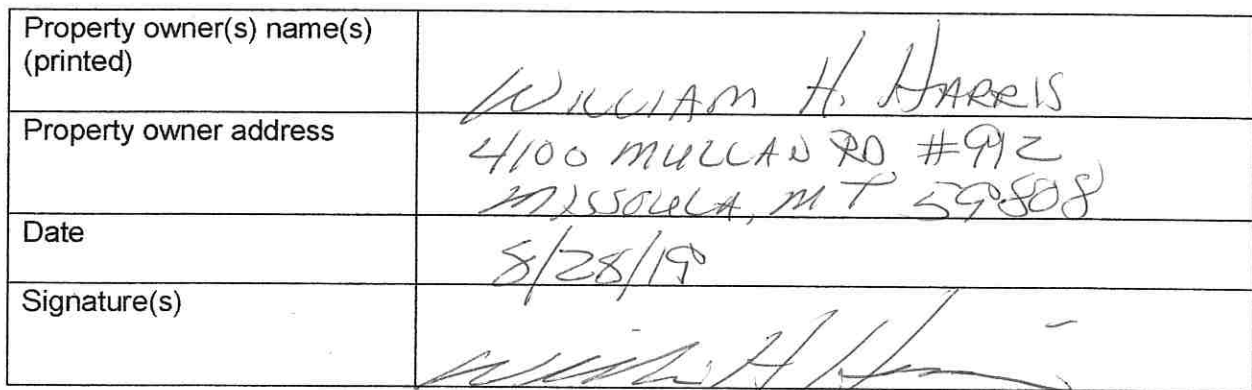 Property owner(s) name(s)
(printed)
WILLIAM H. HARRIS
Property owner address
4100 MULLAN RD #912
MISSOULA, MT 59808
Date
8/28/19
Signature(s)
William H Harris